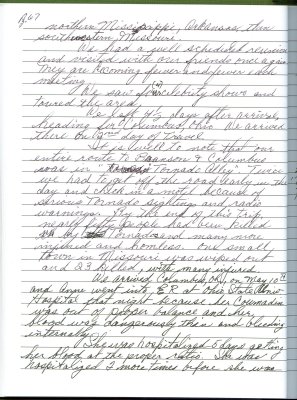 Pg 67
northern Mississippi, Arkansas, then
southwestern Missouri.
We had a well scheduled reunion
and visited with our friends once again.
They are becoming fewer and fewer each
meeting.
We saw four celebrity shows and
toured the area.
We left 4½ days after arrival,
heading for Columbus, Ohio. We arrived
there the 2nd day of travel
It is well to note that our
entire route to Branson & Columbus
was in "Tornado Alley". Twice
we had to get off the road early in the
day and check in a motel because of
serious Tornado sighting and radio
warnings. By the end of this trip
nearly people had been killed
by Tornados and many more
injured and homeless. One small
town in Missouri was wiped out
and 23 killed, with many injured.
We arrived Columbus, Oh, on May 10th
and Anne went into E.R. at Ohio State Univ.
Hospital that night because her Coumadin
was out of proper balance and her
blood was dangerously thin and bleeding
internally.
She was hospitalized 6 days getting
her blood at the proper ratio. She was
hospitalized 2 more times before she was